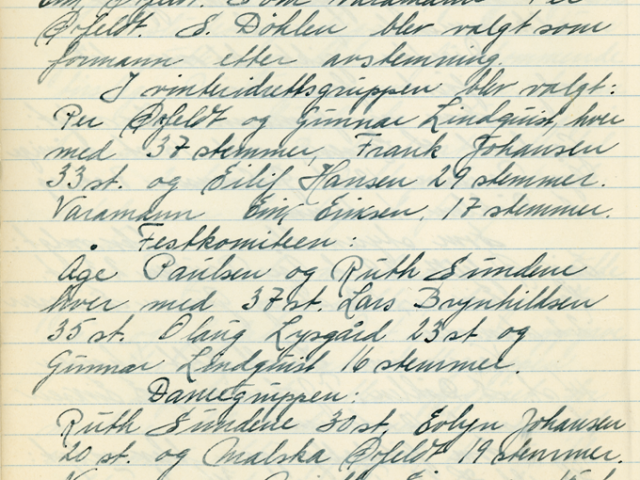 Ørfeldt. S. Døhlen blev valgt som
formann etter avstemning.
I vinteridrettsgruppen blev valgt:
Per Ørfeldt og Gunnar Lindquist, hver
med 37 stemmer, Frank Johansen
33 st. og Eilif Hansen 29 stemmer.
Varamann Eriksen, 17 stemmer.
Festkomiteen:
Åge Paulsen og Ruth Sundene
hver med 37 st. Lars Brynhildsen
35 st. Olaug Lysgård 23 st og
Gunnar Lindquist 16 stemmer.
Damegruppen:
Ruth Sundene 30 st, Evlyn Johansen
20 st. og Malska Ørfeldt 19 stemmer.